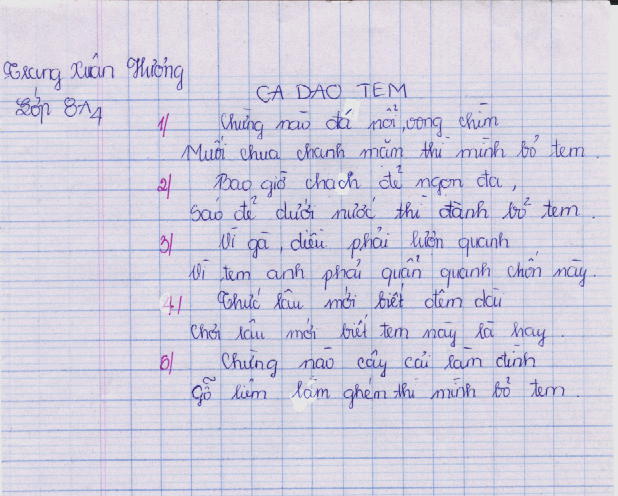 Trang Xuân Hương
Lớp 8A4
CA DAO TEM
1/ Chừng nào đá nổi, vong chìm
Muối chua chanh mặn thì mình bỏ tem.
2/ Bao giờ chạch đẻ ngọn đa,
Sáo đẻ dưới nước thì đành bỏ tem.
3/ Vì gà, diều phải lượn quanh
Vì tem anh phải quẩn quanh chốn này.
4/ Thức lâu mới biết đêm dài
Chơi lâu mới biết tem này là hay.
5/ Chừng nào cây cải làm đình
Gỗ liêm làm ghém thì mình bỏ tem.